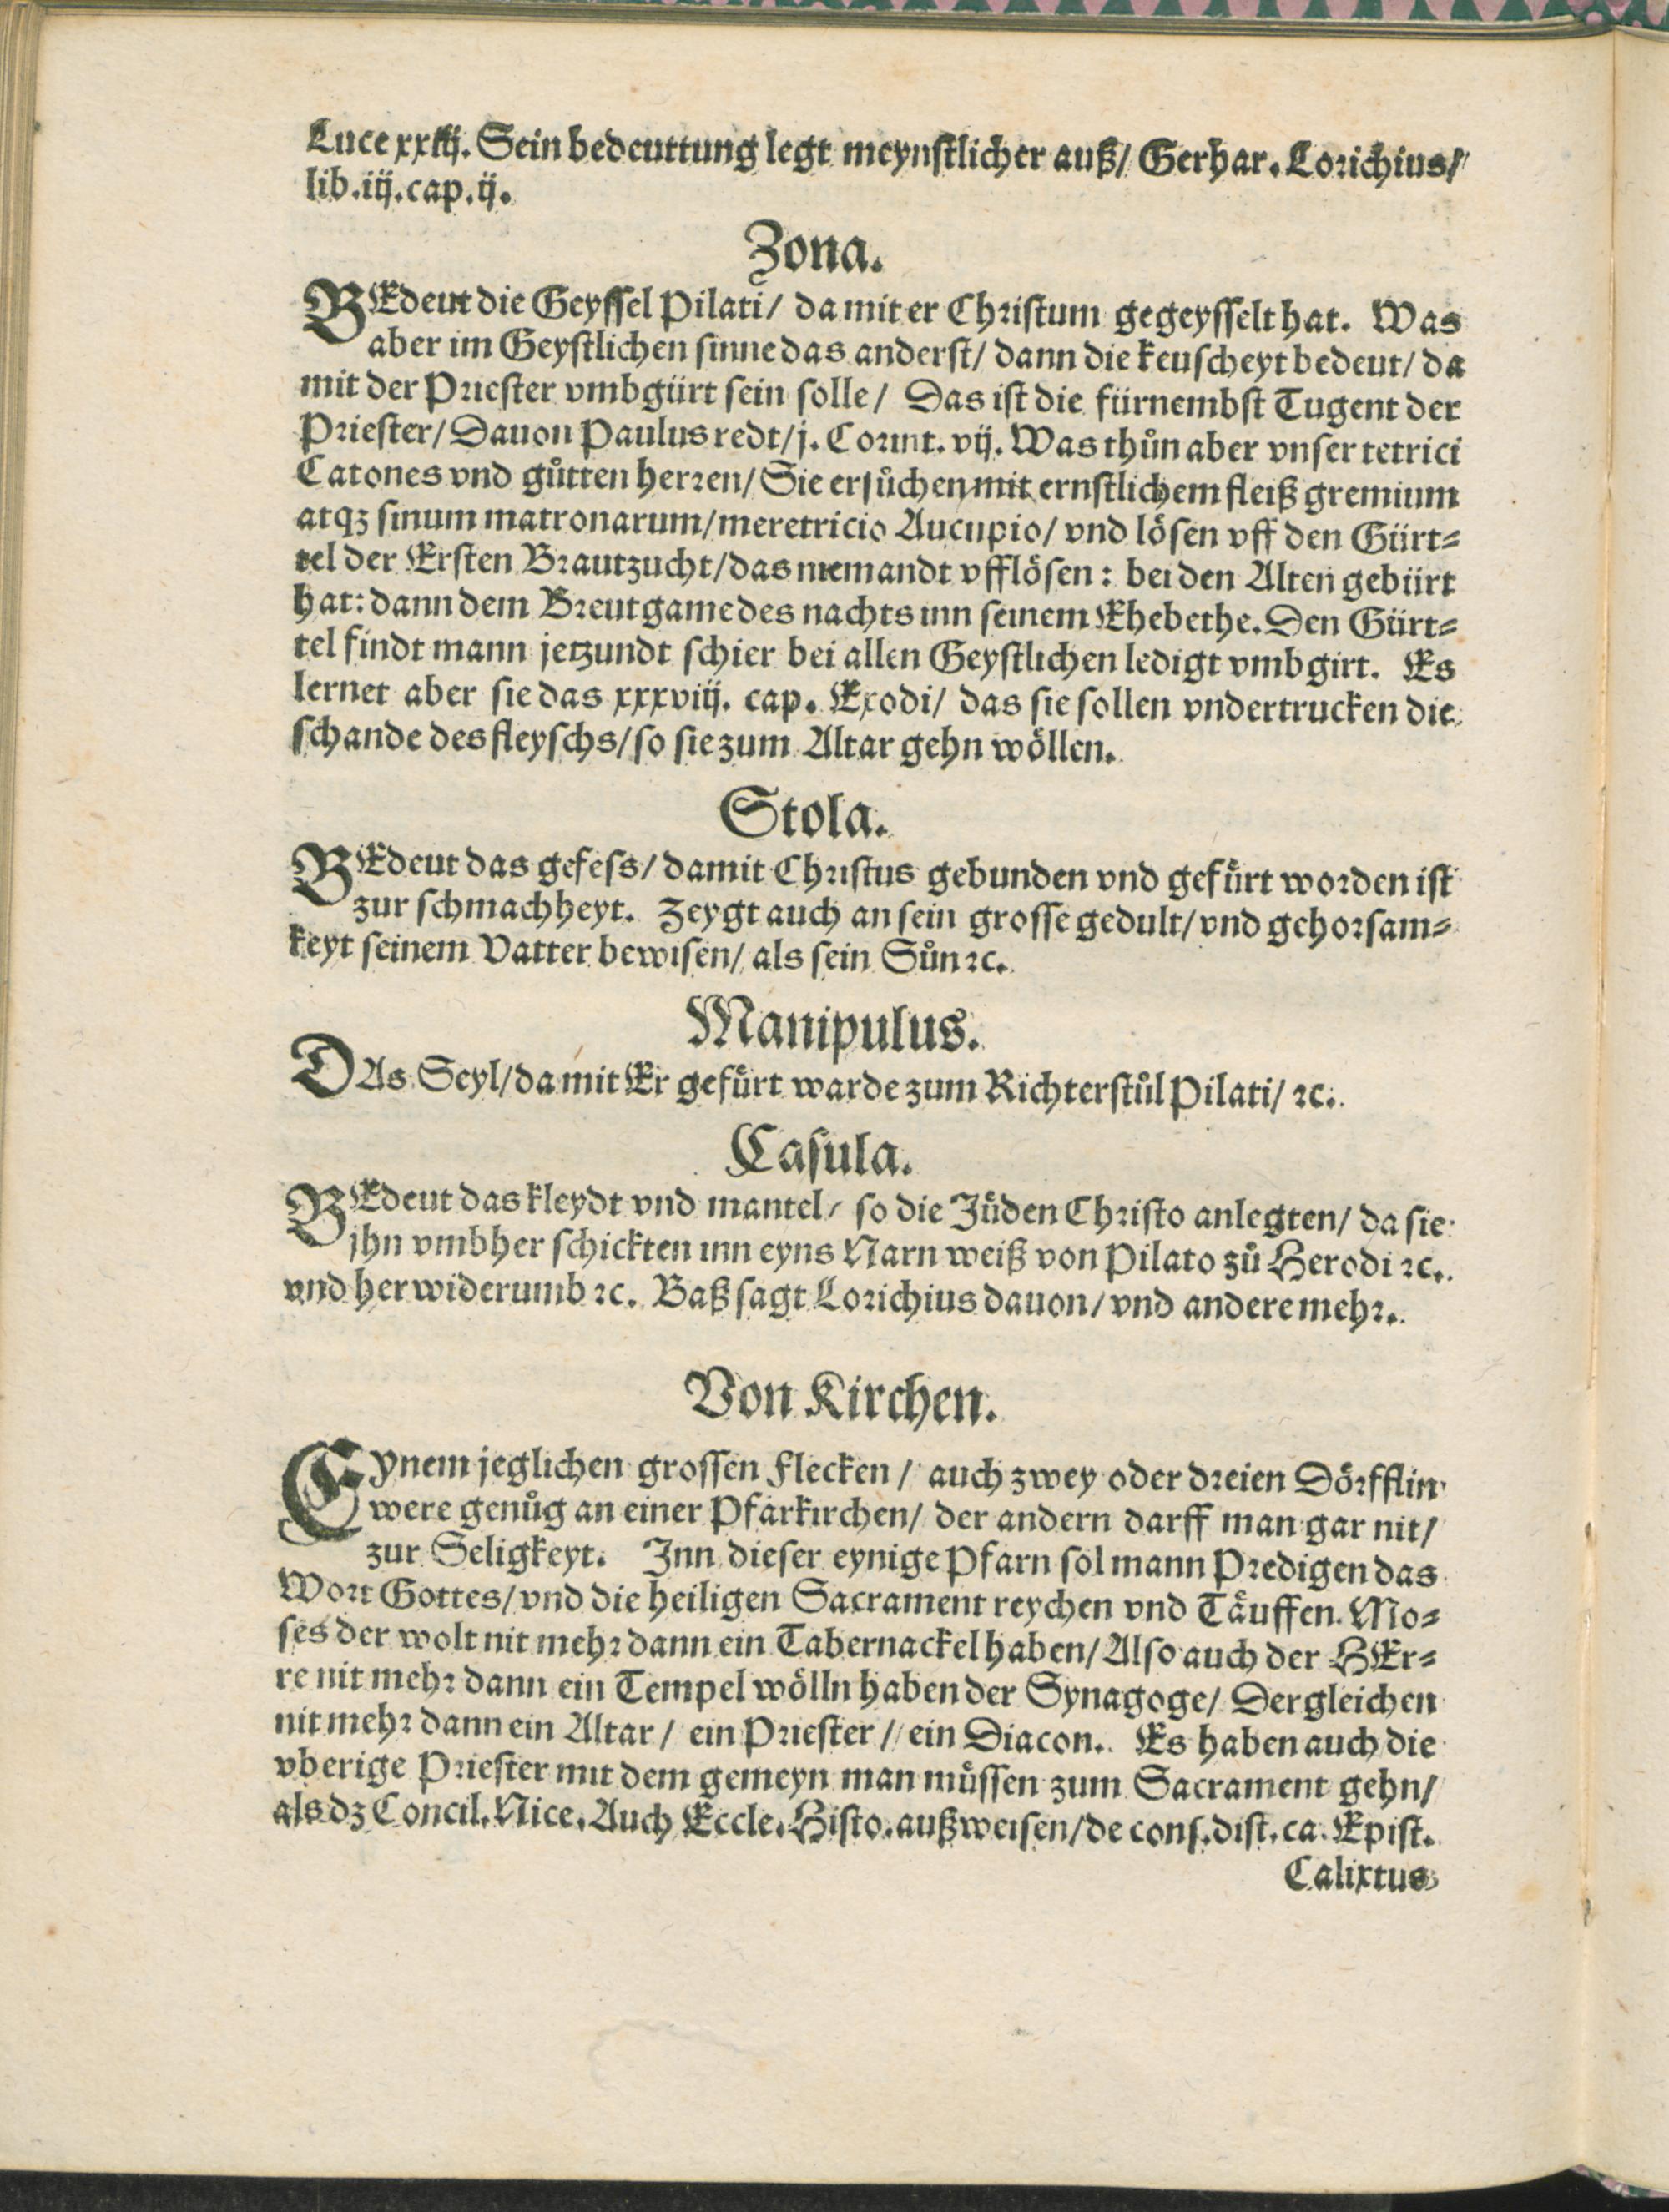 Luce xxiij. Sein bedeuttung legt meynstlicher auß/ Gerhar. Lorichius/
lib.iij.cap.ij.
Zona.
BEdeut die Geyssel Pilati/ da mit er Christum gegeysselt hat. Was
aber im Geystlichen sinne das anderst/ dann die keuscheyt bedeut/ da
mit der Priester vmbgürt sein solle/ Das ist die fürnembst Tugent der
Priester/ Dauon Paulus redt/ j. Corint. vij. Was thůn aber vnser tetrici
Catones vnd gůtten herren/ Sie ersůchen mit ernstlichem fleiß gremium
atqꝫ sinum matronarum/ meretricio Aucupio/ vnd lösen vff den Gürt⸗
tel der Ersten Brautzucht/ das niemandt vfflösen: bei den Alten gebürt
hat: dann dem Breutgame des nachts inn seinem Ehebethe. Den Gürt⸗
tel findt mann jetzundt schier bei allen Geystlichen ledigt vmbgirt. Es
lernet aber sie das xxxviij. cap. Exodi/ das sie sollen vndertrucken die
schande des fleyschs/ so sie zum Altar gehn wöllen.
Stola.
BEdeut das gefess/ damit Christus gebunden vnd gefürt worden ist
zur schmachheyt. Zeygt auch an sein grosse gedult/ vnd gehorsam⸗
keyt seinem Vatter bewisen/ als sein Sůn ꝛc.
Manipulus.
DAs Seyl/ da mit Er gefürt warde zum Richterstůl Pilati/ ꝛc.
Casula.
BEdeut das kleydt vnd mantel/ so die Jüden Christo anlegten/ da sie
jhn vmbher schickten inn eyns Narn weiß von Pilato zů Herodi ꝛc.
vnd her widerumb ꝛc. Baß sagt Lorichius dauon/ vnd andere mehr.
Von Kirchen.
EYnem jeglichen grossen Flecken/ auch zwey oder dreien Dörfflin
were genůg an einer Pfarkirchen/ der andern darff man gar nit/
zur Seligkeyt. Inn dieser eynige Pfarn sol mann Predigen das
Wort Gottes/ vnd die heiligen Sacrament reychen vnd Täuffen. Mo⸗
ses der wolt nit mehr dann ein Tabernackel haben/ Also auch der HEr⸗
re nit mehr dann ein Tempel wölln haben der Synagoge/ Dergleichen
nit mehr dann ein Altar/ ein Priester/ ein Diacon. Es haben auch die
vberige Priester mit dem gemeyn man müssen zum Sacrament gehn/
als dz Concil. Nice. Auch Eccle. Histo. außweisen/ de cons. dist. ca. Epist.
Calixtus